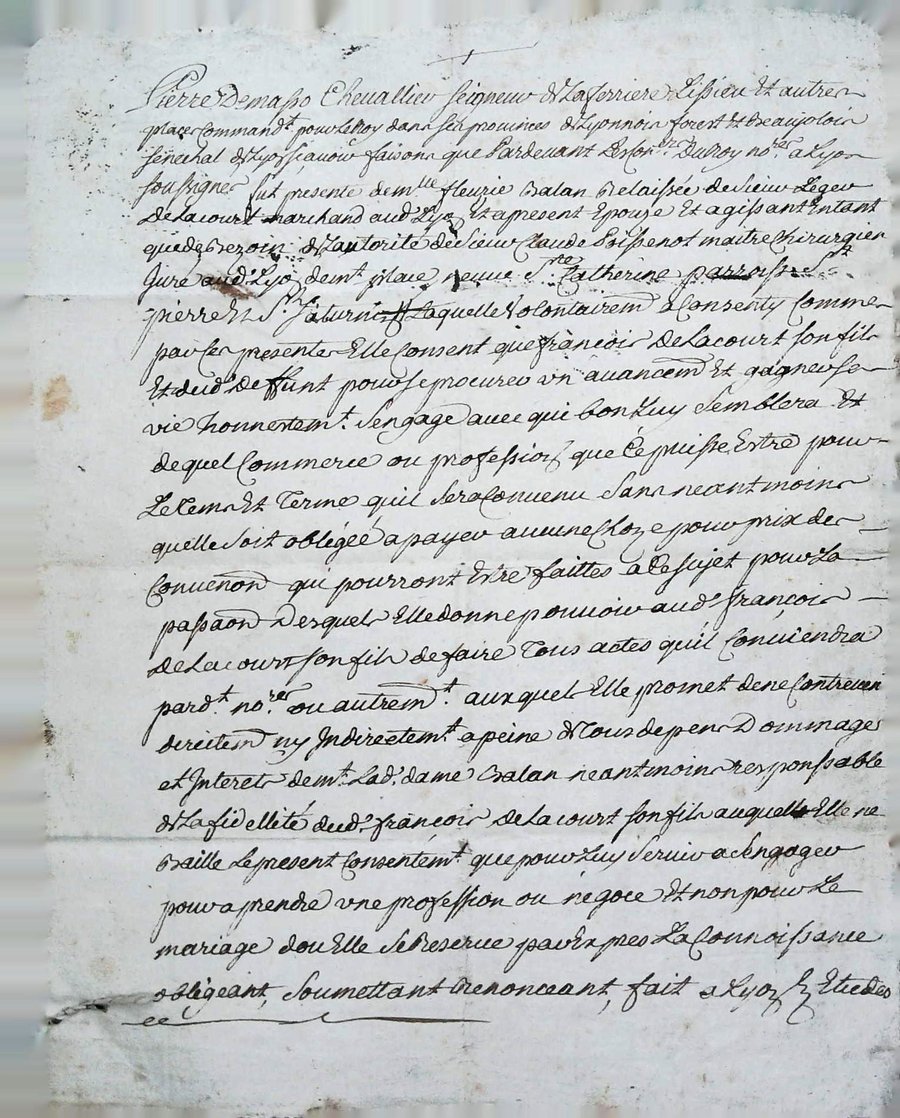 Pierre Demasso Chevallier Seigneur De La ferriere Lissieu Et autres
places Command.t pour Le Roy dans ses provinces de Lyonnois forest Et Beaujolois
Senechal de Lyon scavoir faisons que Pardevant Les Con.ers Du Roy no.res a Lyon
soussignes fut presente dem.lle fleurie Balan Relaissée de Sieur Leger
De Lacourt marchand aud. Lyon Et apresent Epouse Et agissant Entant
que de Bezoin de Lautorité de Sieur Claude Poissenot maitre Chirurgien
Juré aud. Lyon dem.t place neuve S.te Catherine parroisse S.t
pierre Et S.t Saturnin Laquelle volontairem.t a Consenty Comme
par Ces presentes Elle Consent que françois De Lacourt son fils
Et dud. deffunt pour se procurer un avancem.t Et gagner sa
vie honnestem.t Sengage avec qui bon Luy Semblera Et
de quel Commerce ou profession que Ce puisse Estre pour
Le Tems Et Terme quil Sera Convenu Sans neantmoins
quelle soit obligéé a payer aucune Choze pour prix des
Convenōn qui pourront Estre faittes a Ce sujet pour La
passaōn Desquels Elle donne pouvoir aud. françois
de Lacourt son fils de faire Tous actes quil Conviendra
pard.t no.res ou autrem.t auxquels Elle promet de ne Contrevenir
directem.t ny Indirectem.t a peine de Tous depens Dommages
et Interets dem.t Lad. dame Balan neantmoins responssable
de La fidellité dud. françois de Lacourt son fils auquel Elle ne
Baille Le present Consentem.t que pour Luy Servir a Sengager
pour aprendre une profession ou négoce Et non pour Le
mariage dou Elle Se Reserve par Expres La Connoissance
obligeant, Soumettant Renonceant, fait a Lyon Es Etudes